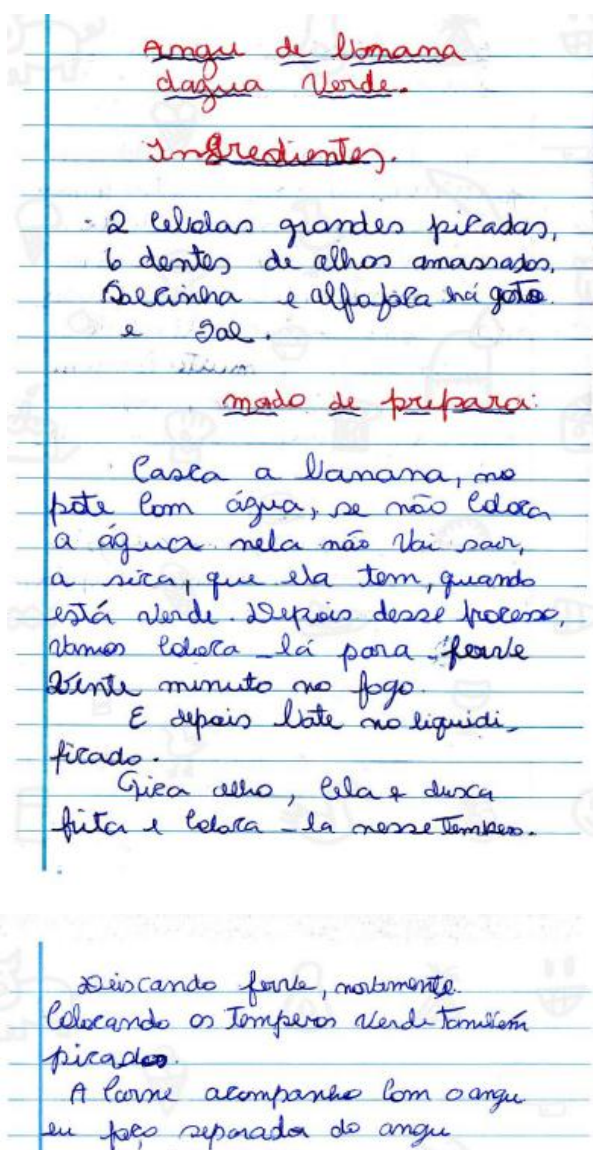 Angu de banana
dagua Verde.
Ingredientes.
- 2 cebolas grandes picadas,
6 dentes de alhos amassados,
Salcinha e alfafaca há gosto
e Sal.
modo de prepara:
Casca a banana, no
pote com água, se não coloca
a água nela não vai sair,
a sica, que ela tem, quando
está verde. Depois desse processo,
vamos coloca-lá para ferve
Vinte minuto no fogo.
E depois bate no liquidi-
ficado.
Pica alho, e
frita e coloca-la nesse Tempero.
Deiscando ferve, novamente.
Colocando os Temperos verde Também
picados.
A Carne acompanho com o angu
eu faço separador do angu